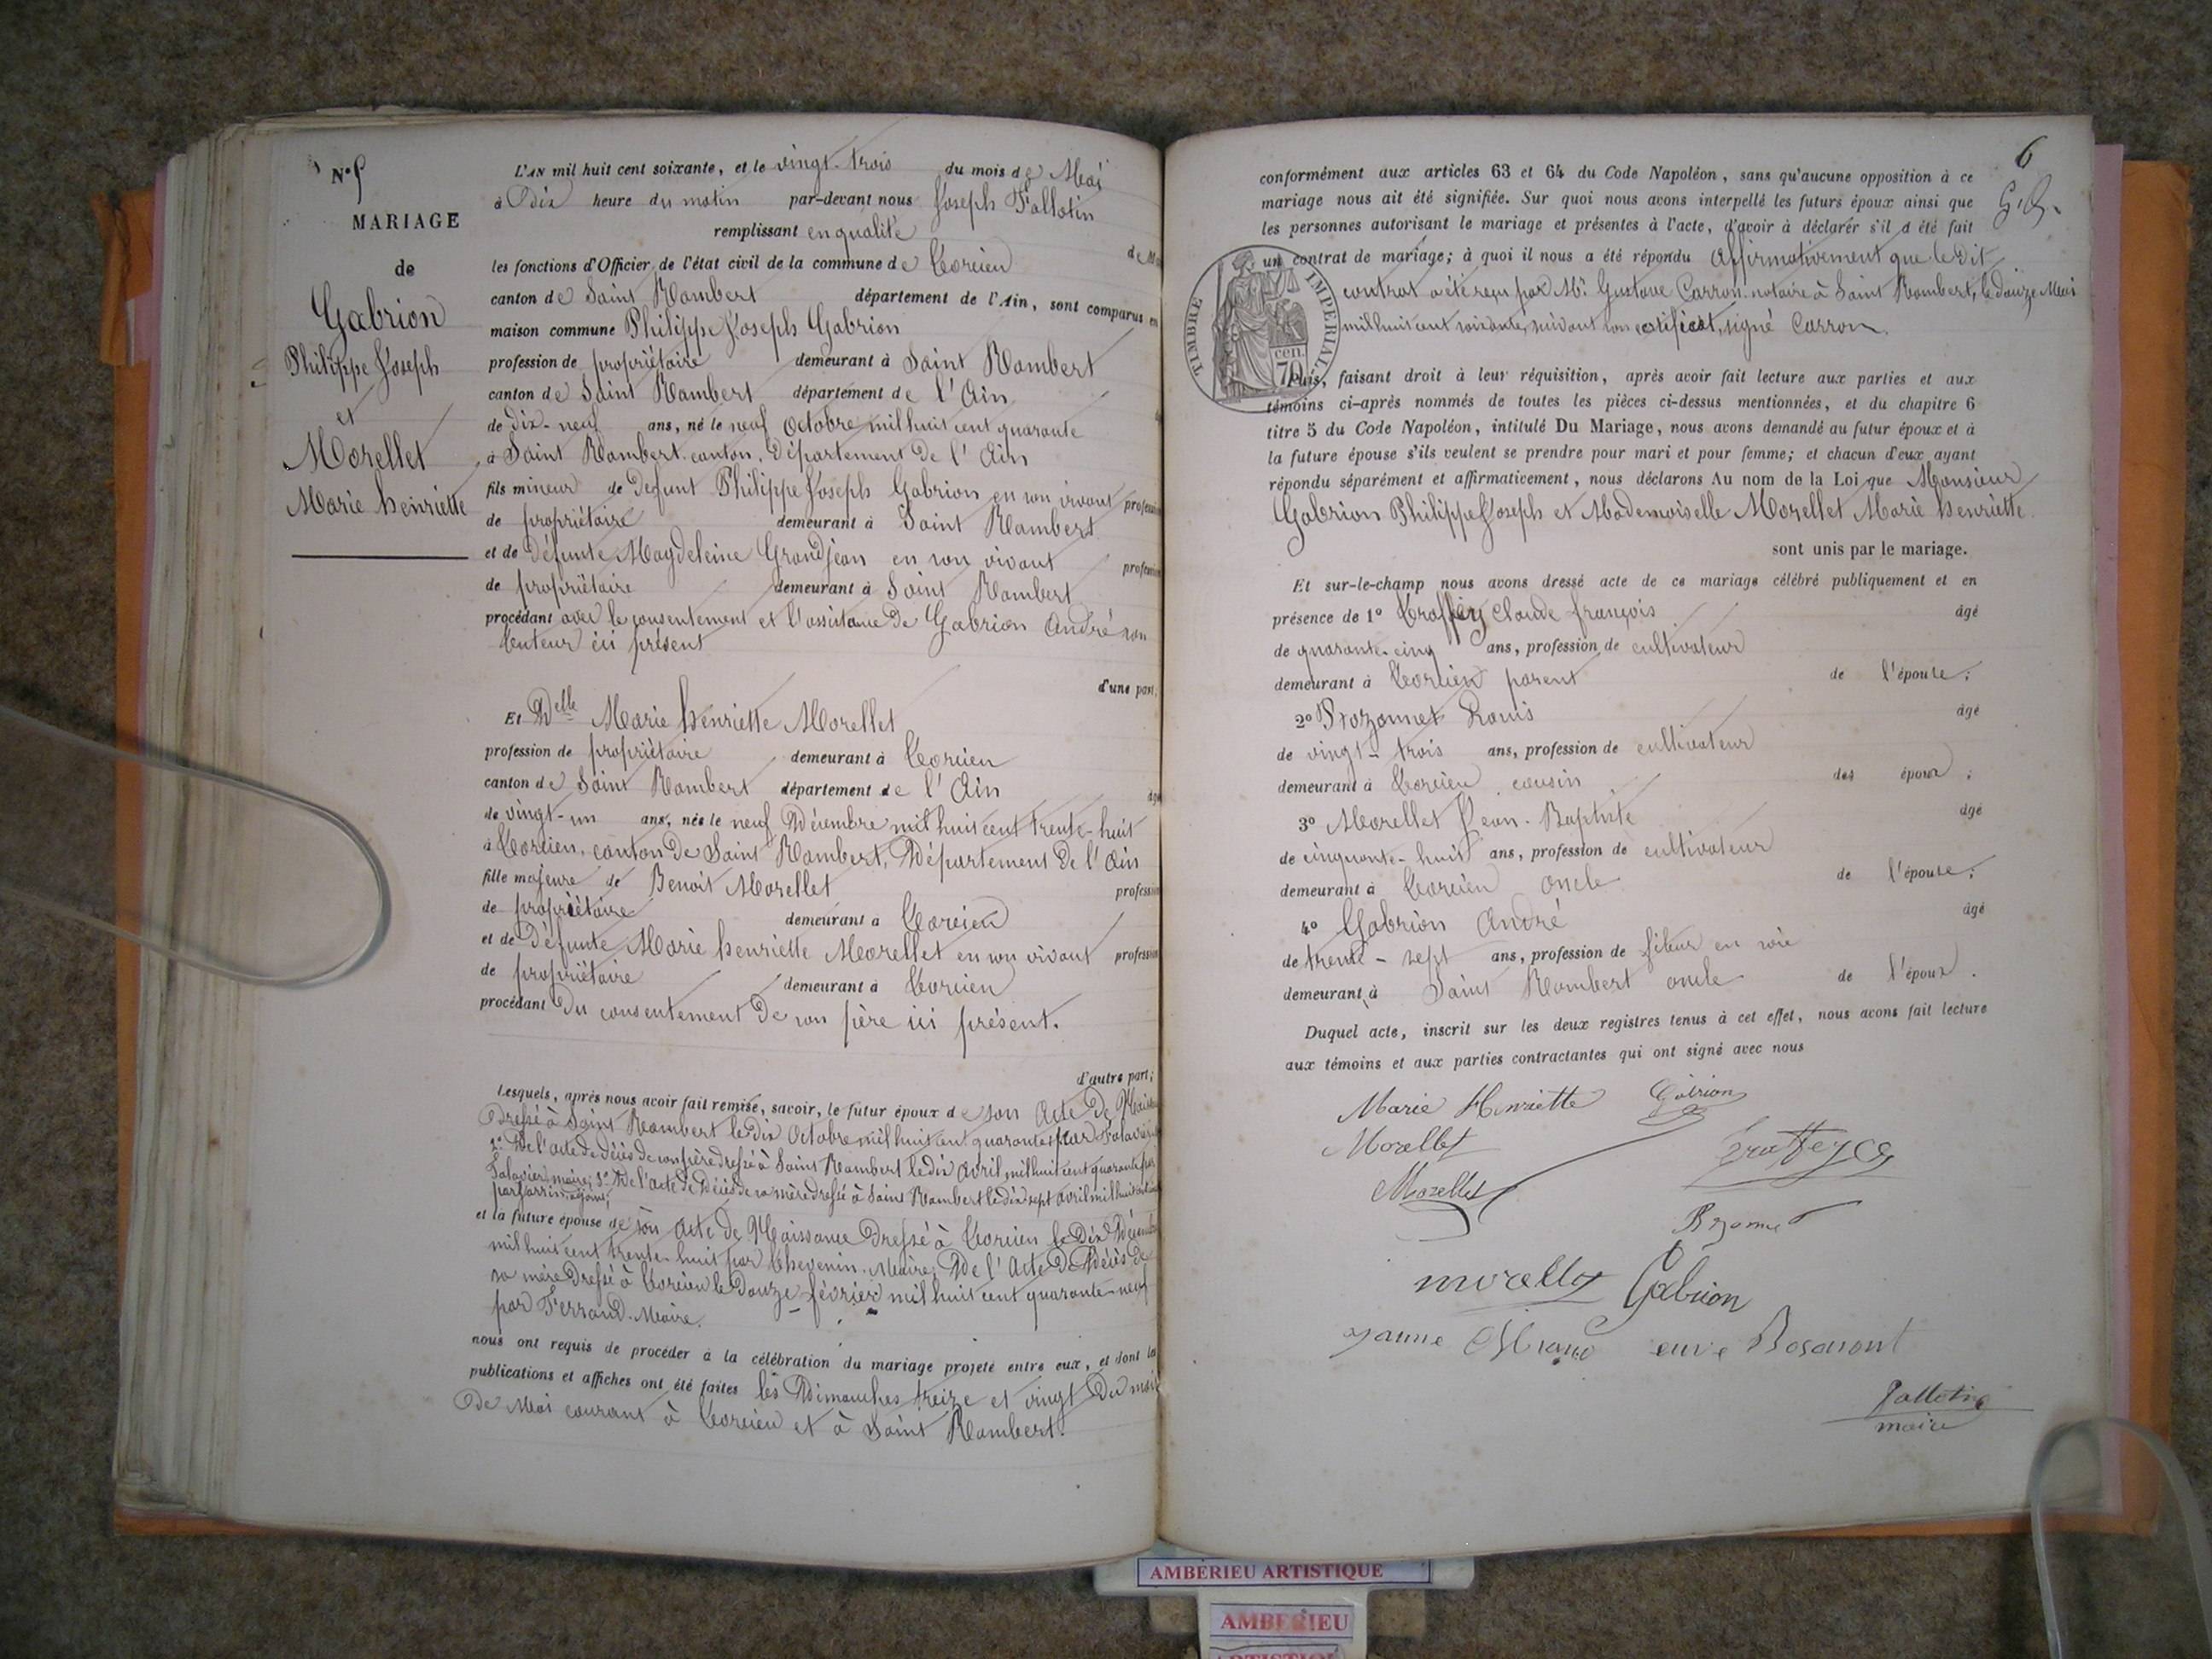 N° 5
MARIAGE
de
Gabrion
Philippe Joseph
et
Morellet
Marie henriette
L'AN mil huit cent soixante, et le vingt-trois du mois de Mai
à Dix heure du matin par-devant nous Joseph Fallotin
remplissant en qualité de M
les fonctions d'Officier de l'état civil de la commune de Torcieu
canton de Saint Rambert département de l'Ain, sont comparus en
maison commune Philippe Joseph Gabrion
profession de propriétaire demeurant à Saint Rambert
canton de Saint Rambert département de l'Ain
de dix-neuf ans, né le neuf Octobre mil huit cent quarante
à Saint Rambert canton, Département de l'Ain
fils mineur de Defunt Philippe Joseph Gabrion en son vivant profession
de propriétaire demeurant à Saint Rambert
et de défunte Magdeleine Grandjean en son vivant profession
de propriétaire demeurant à Saint Rambert
procédant avec le consentement et l'assistance de Gabrion André son
tuteur ici présent
d'une part;
Et Delle Marie henriette Morellet
profession de propriétaire demeurant à Torcieu
canton de Saint Rambert département de l'Ain âgé
de vingt-un ans, née le neuf Décembre mil huit cent trente-huit
à Torcieu, canton de Saint Rambert, Département de l'Ain
fille majeure de Benoit Morellet profession
de propriétaire demeurant à Torcieu
et de défunte Marie henriette Morellet en son vivant profession
de propriétaire demeurant à Torcieu
procédant du consentement de son père ici présent.
d'autre part;
Lesquels, après nous avoir fait remise, savoir, le futur époux de son Acte de Naissance
Dressé à Saint Rambert le dix Octobre mil huit cent quarante par
2° De l'acte de décès de son père dressé à Saint Rambert le dix avril mil huit cent quarante
maire; 3° De l'acte de Décès de sa mère dressé à Saint Rambert le dix sept avril mil huit cent
par adjoint;
et la future épouse de son acte de Naissance Dressé à Torcieu le Dix Décembre
mil huit cent trente-huit par Thevenin, Maire; De l'Acte de Décès de
sa mère Dressé à Torcieu le Douze février mil huit cent quarante-neuf
par Ferrand, Maire.
nous ont requis de procéder à la célébration du mariage projeté entre eux, et dont les
publications et affiches ont été faites les Dimanches treize et vingt Du mois
De Mai courant à Torcieu et à Saint Rambert.
6
conformément aux articles 63 et 64 du Code Napoléon, sans qu'aucune opposition à ce
mariage nous ait été signifiée. Sur quoi nous avons interpellé les futurs époux ainsi que
les personnes autorisant le mariage et présentes à l'acte, d'avoir à déclarer s'il a été fait
un contrat de mariage; à quoi il nous a été répondu Affirmativement que le dit
contrat a été reçu par Mr. Gustave Carron notaire à Saint Rambert, le douze Mai
mil huit cent soixante, suivant son certificat, signé Carron.
TIMBRE IMPERIAL
70 cen.
Puis, faisant droit à leur réquisition, après avoir fait lecture aux parties et aux
témoins ci-après nommés de toutes les pièces ci-dessus mentionnées, et du chapitre 6
titre 5 du Code Napoléon, intitulé Du Mariage, nous avons demandé au futur époux et à
la future épouse s'ils veulent se prendre pour mari et pour femme; et chacun d'eux ayant
répondu séparément et affirmativement, nous déclarons Au nom de la Loi que Monsieur
Gabrion Philippe Joseph et Mademoiselle Morellet Marie henriette
sont unis par le mariage.
Et sur-le-champ nous avons dressé acte de ce mariage célébré publiquement et en
présence de 1° Traffey Claude françois âgé
de quarante-cinq ans, profession de cultivateur
demeurant à Torcieu parent de l'épouse;
2° Prozonnet Louis âgé
de vingt-trois ans, profession de cultivateur
demeurant à Torcieu cousin des époux;
3° Morellet Jean-Baptiste âgé
de cinquante-huit ans, profession de cultivateur
demeurant à Torcieu oncle de l'épouse;
4° Gabrion André âgé
de trente-sept ans, profession de fileur en soie
demeurant à Saint Rambert oncle de l'époux.
Duquel acte, inscrit sur les deux registres tenus à cet effet, nous avons fait lecture
aux témoins et aux parties contractantes qui ont signé avec nous
Marie Henriette Gabrion
Morellet
Morellet
morellet Gabrion
Fallotin
maire
AMBÉRIEU ARTISTIQUE
AMBERIEU
ARTISTIQUE